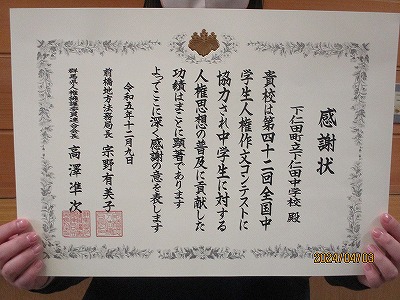 感謝状
下仁田町立下仁田中学校 殿
貴校は第四十二回全国中
学生人権作文コンテストに
協力され中学生に対する
人権思想の普及に貢献した
功績はまことに顕著であります
よってここに深く感謝の意を表します
令和五年十二月九日
前橋地方法務局長 宗野有美子
群馬県人権擁護委員連合会長 高澤準次
2024/04/03